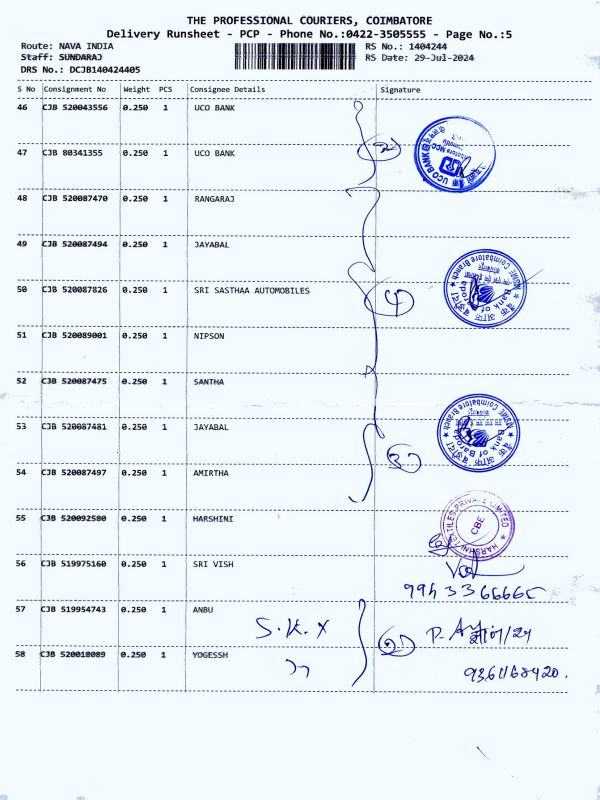 THE PROFESSIONAL COURIERS, COIMBATORE
Delivery Runsheet - PCP - Phone No.:0422-3505555 - Page No.:5
Route: NAVA INDIA RS No.: 1404244
Staff: SUNDARAJ RS Date: 29-Jul-2024
DRS No.: DCJB140424405
S No Consignment No Weight PCS Consignee Details Signature
46 CJB 520043556 0.250 1 UCO BANK
UCO BANK
47 CJB 80341355 0.250 1 UCO BANK
48 CJB 520087470 0.250 1 RANGARAJ
49 CJB 520087494 0.250 1 JAYABAL
50 CJB 520087826 0.250 1 SRI SASTHAA AUTOMOBILES 4
Coimbatore Branch
51 CJB 520089001 0.250 1 NIPSON
52 CJB 520087475 0.250 1 SANTHA
53 CJB 520087481 0.250 1 JAYABAL
Bank of Baroda
Coimbatore Branch
54 CJB 520087497 0.250 1 AMIRTHA 3
55 CJB 520092580 0.250 1 HARSHINI
HARSHINI TEXTILES PRIVATE LIMITED
CBE
56 CJB 519975160 0.250 1 SRI VISH
57 CJB 519954743 0.250 1 ANBU
S.K. X
58 CJB 520018089 0.250 1 YOGESSH